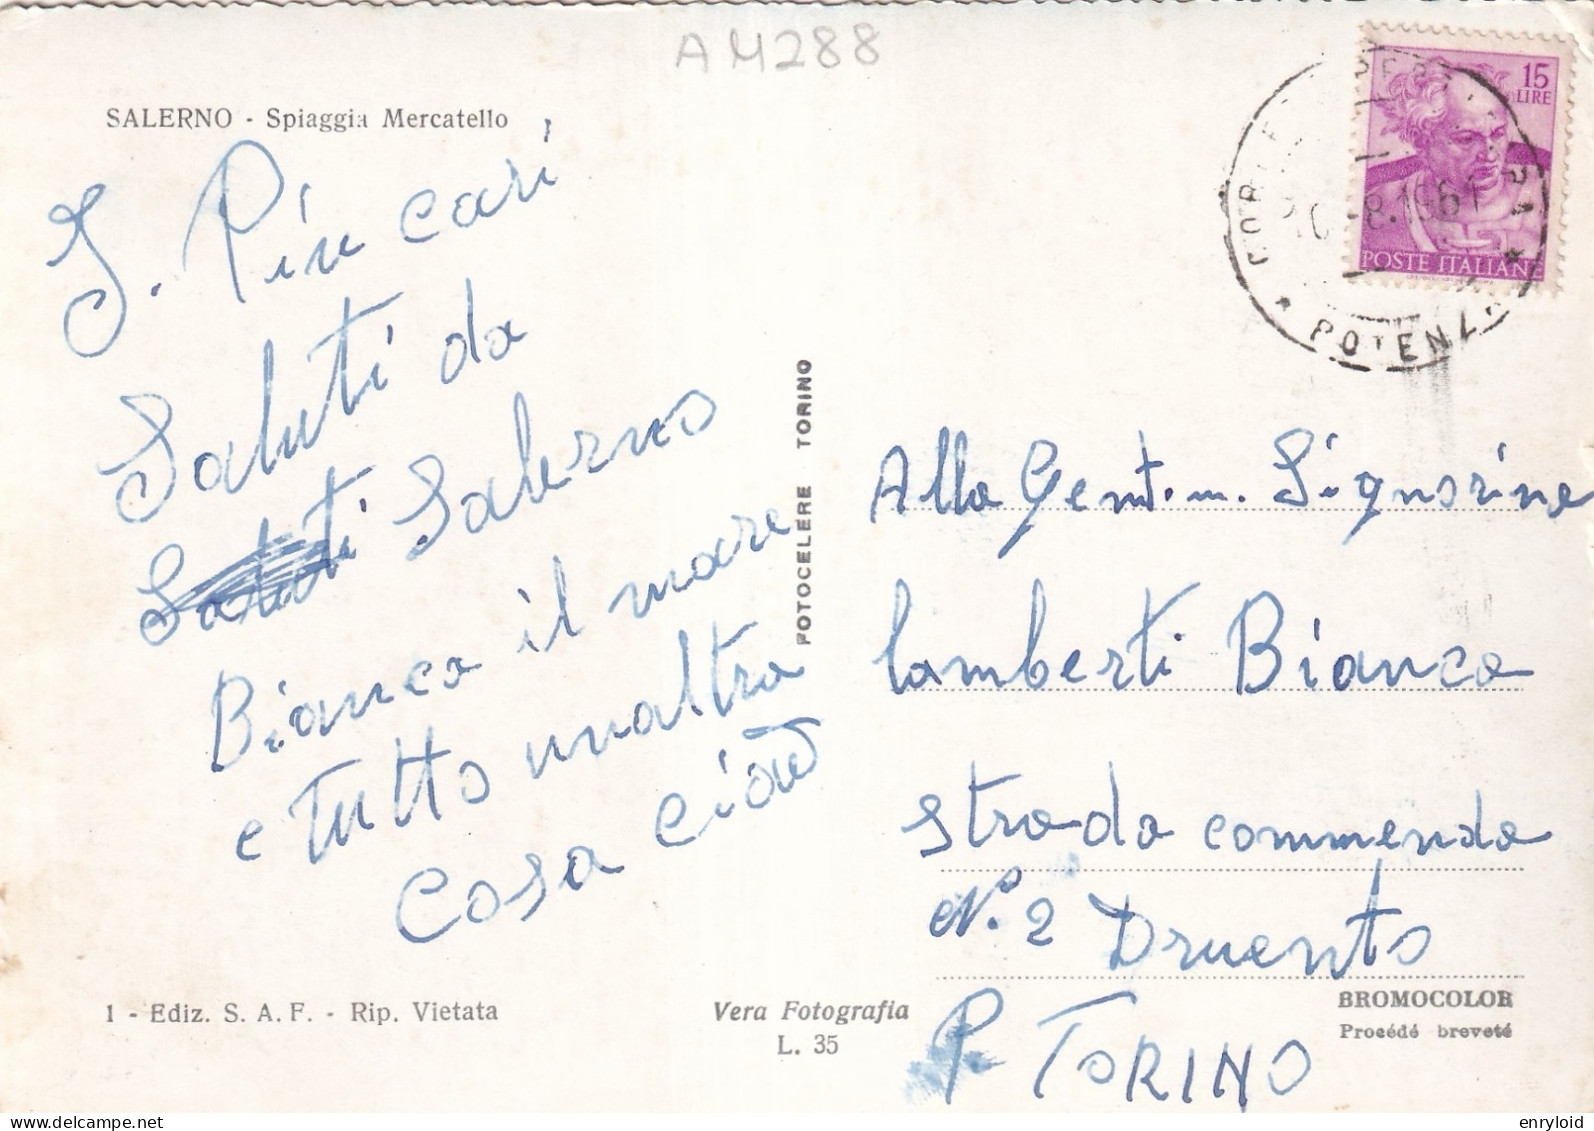 AM288
SALERNO - Spiaggia Mercatello
I. Piu cari
Saluti da
Saluti Salerno
Bianca il mare
e Tutto unaltra
Cosa ciao
1 - Ediz. S. A. F. - Rip. Vietata
Vera Fotografia
L. 35
FOTOCELERE TORINO
15
LIRE
POSTE ITALIANE
8.1961
POTENZA
Alla Gent.m. Signorina
Lamberti Bianca
strada commenda
N.° 2 Druento
P. TORINO
BROMOCOLOR
Procédé breveté
enryloid